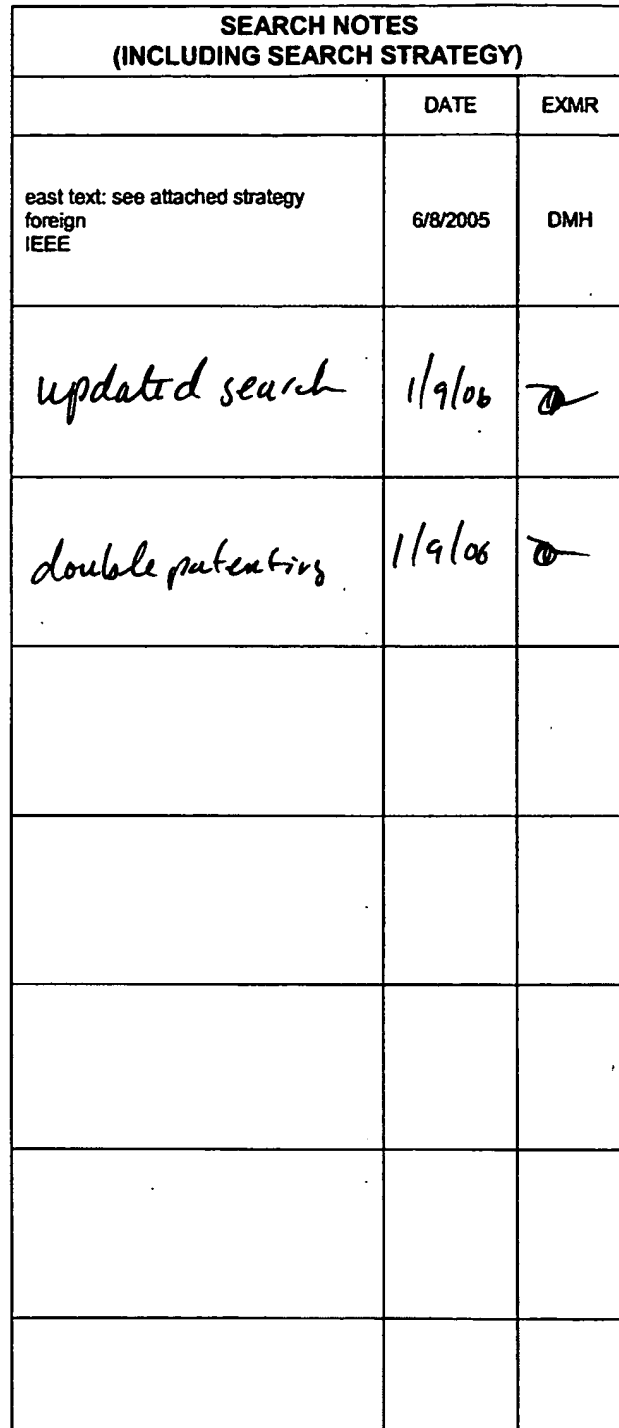 SEARCH NOTES
(INCLUDING SEARCH STRATEGY)
DATE EXMR
east text: see attached strategy
foreign
IEEE
6/8/2005 DMH
updated search 1/9/06
double patenting 1/9/06